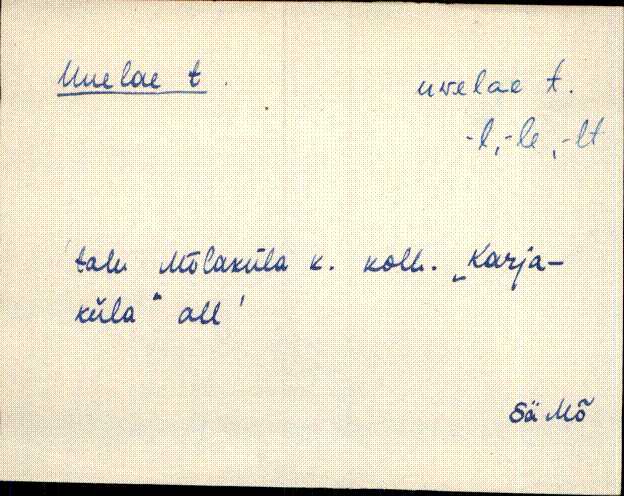 Uuelae t.
uvelae t.
-l, -le, -lt
'talu Mõlaküla k. koll. „Karja-
küla" all'
Sä Mõ